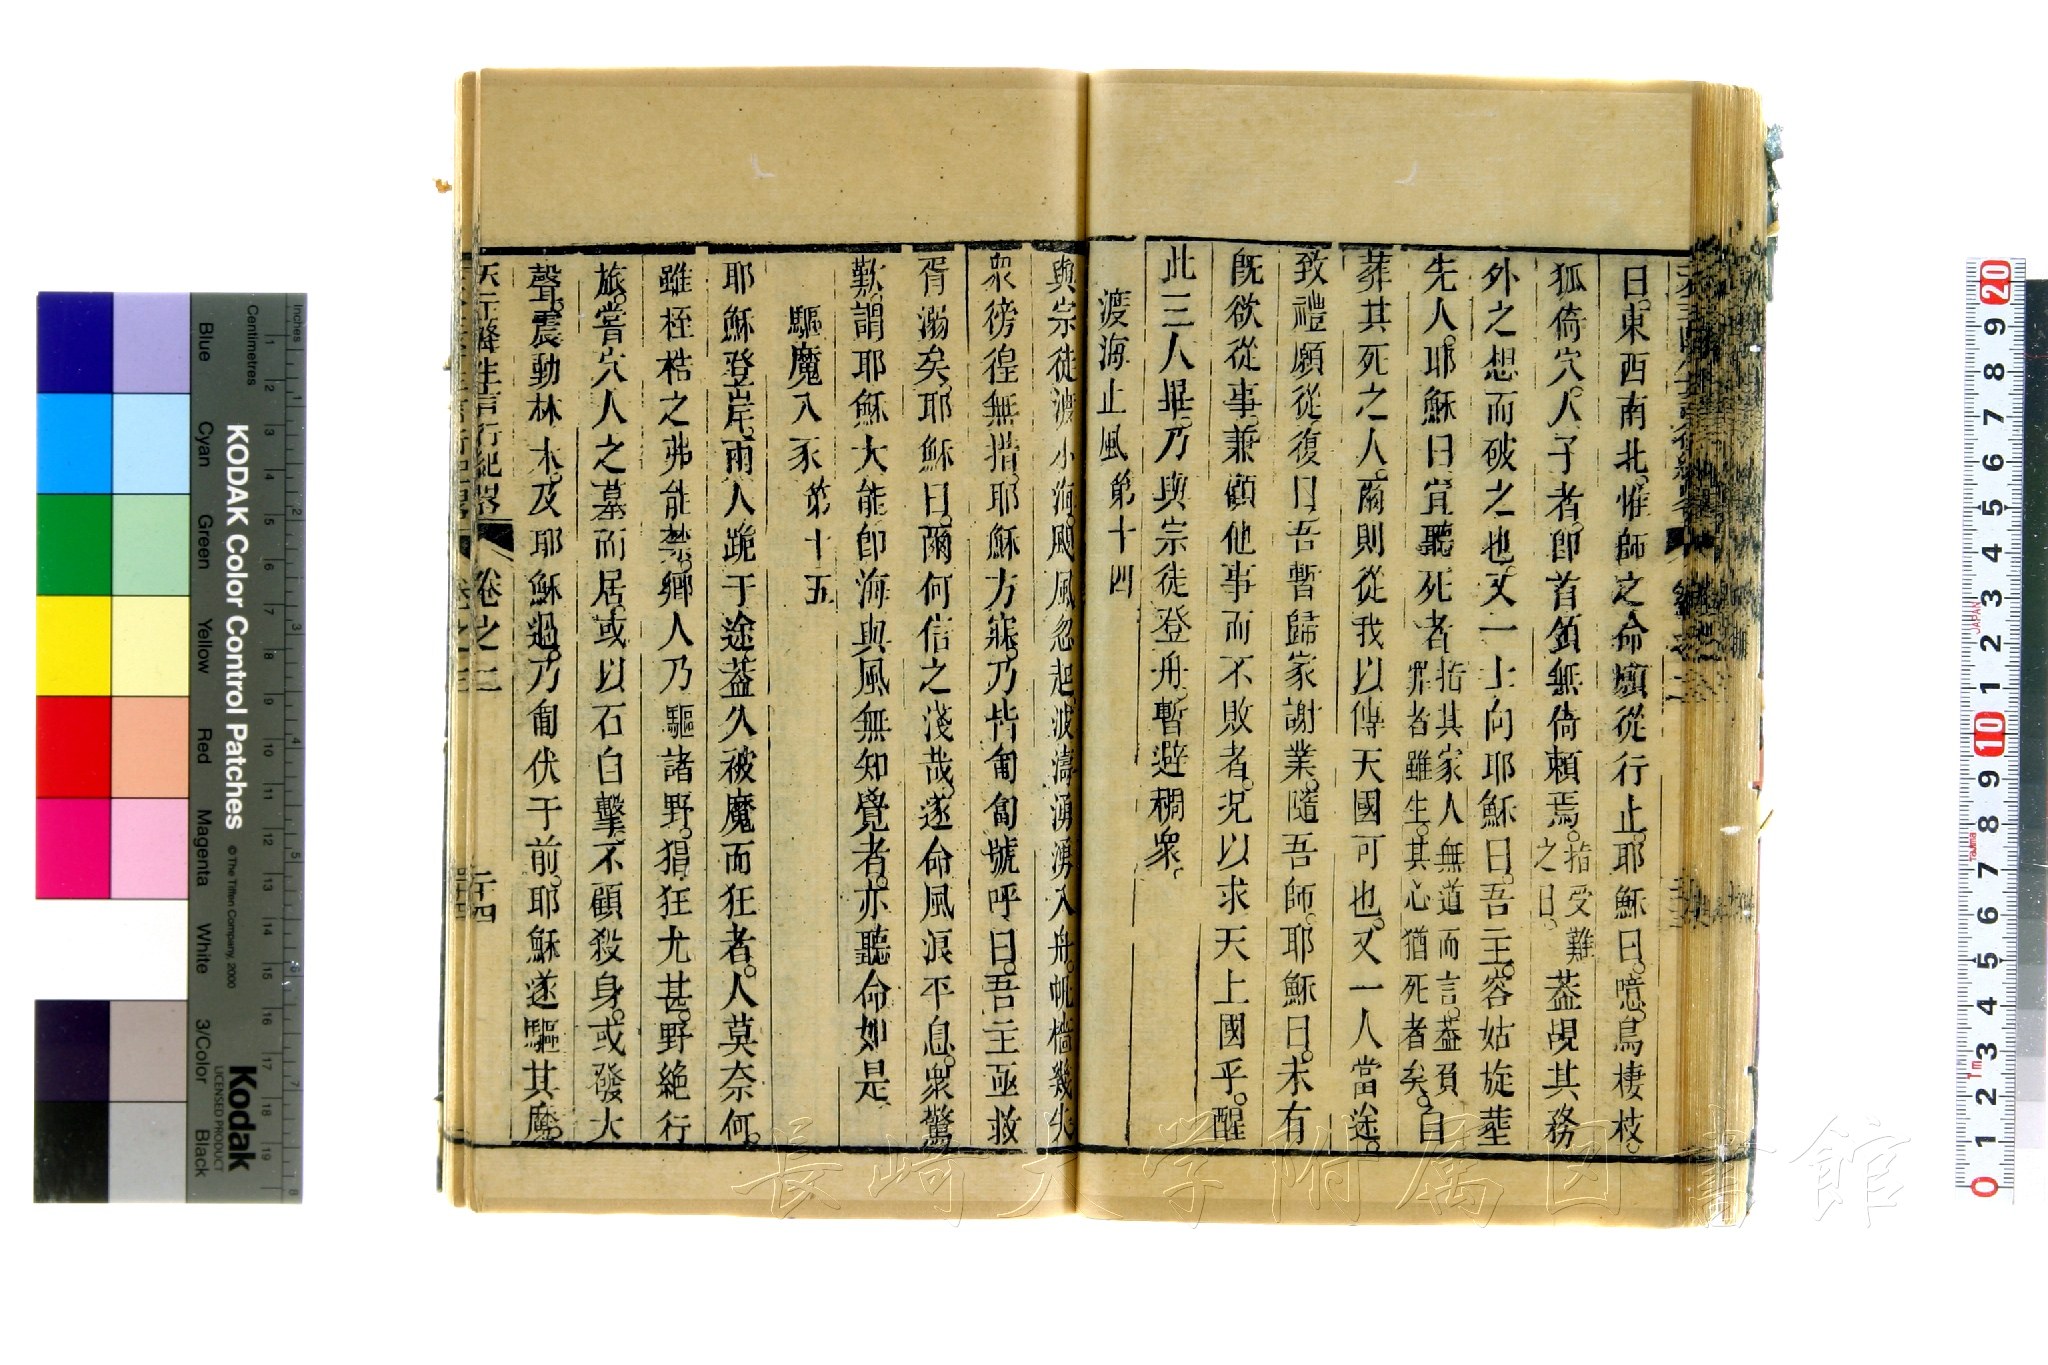 曰。東西南北。惟師之命。願從行止。耶穌曰。噫。鳥棲枝。
狐倚穴。人子者。卽首領無倚賴焉。指受難之日。葢覘其務
外之想而破之也。又一士向耶穌曰。吾主。容姑旋塟
先人。耶穌曰宜聽死者指其家人無道而言。葢負罪者雖生。其心猶死者矣。自
葬其死之人。爾則從我以傳天國可也。又一人當途。
致禮願從。復曰吾暫歸家謝業。隨吾師。耶穌曰。未有
旣欲從事。兼顧他事而不敗者。况以求天上國乎。醒
此三人畢。乃與宗徒登舟。暫避稠衆。
渡海止風第十四
與宗徒渡小海。颶風忽起。波濤湧湧入舟。帆檣幾失
衆徬徨無措。耶穌方寐。乃皆匍匐號呼曰。吾主亟救
胥溺矣。耶穌曰。爾何信之淺哉。遂命風浪平息。衆驚
歎。謂耶穌大能卽海與風無知覺者。亦聽命如是
驅魔入豕第十五
耶穌登岸。兩人跪于途葢久被魔而狂者。人莫奈何。
雖桎梏之弗能禁。鄉人乃驅諸野。猖狂尤甚。野絶行
旅。嘗穴人之墓而居。或以石自擊。不顧殺身。或發大
聲。震動林木。及耶穌過。乃匍伏于前。耶穌遂驅其魔。
天主降生言行紀畧 卷之三 二十四
KODAK Color Control Patches
© The Tiffen Company, 2000
Kodak
LICENSED PRODUCT
Inches
Centimetres
Blue
Cyan
Green
Yellow
Red
Magenta
White
3/Color
Black
長崎大学附属図書館